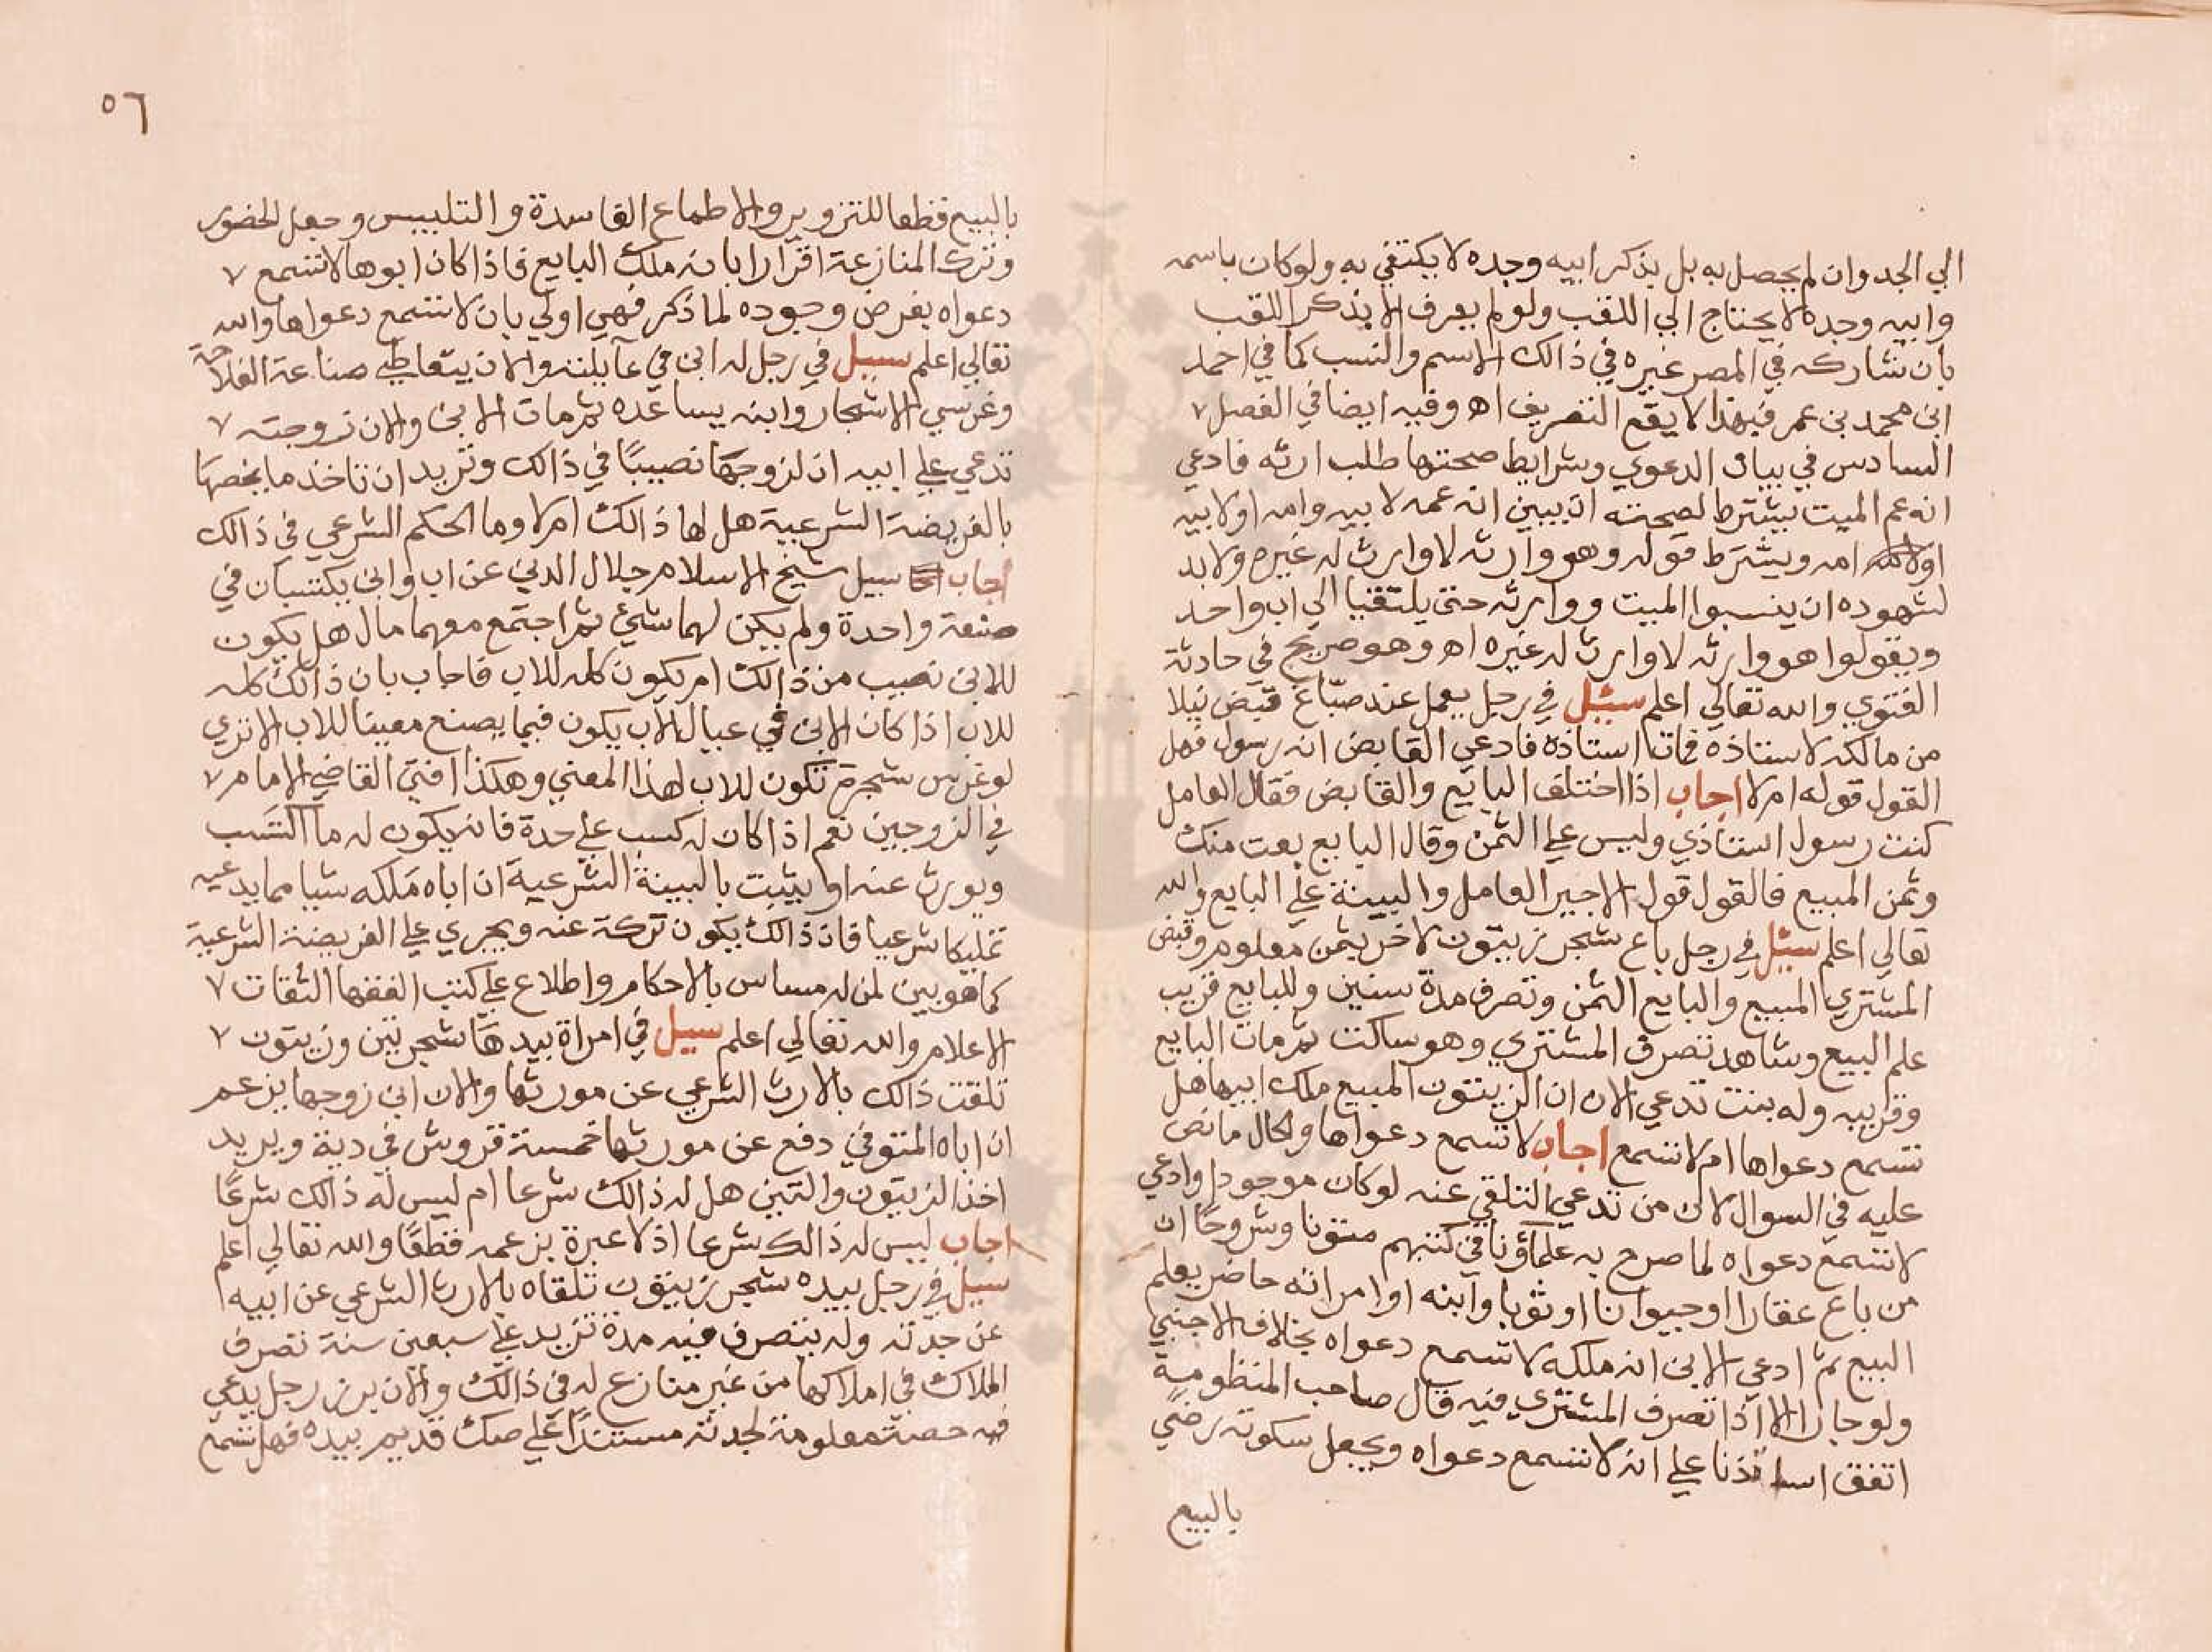 الي الجد وان لم يحصل به بل بذكر ابيه وجده لا يكتفي به ولو كان باسمه
وابيه وجده لا يحتاج الي اللقب ولو لم يعرف الا بذكر اللقب
بان شاركه في المصر غيره في ذالك الاسم والنسب كما في احمد
ابن محمد بن عمر فبهذا لا يقع التعريف اه وفيه ايضا في الفصل ٧
السادس في بيان الدعوي وشرايط صحتها طلب ارثه فادعي
انه عم الميت يشترط لصحته ان يبين انه عمه لابيه وامه او لابيه
او لامه ويشترط قوله وهو وارثه لا وارث له غيره ولا بد
لشهوده ان ينسبوا الميت ووارثه حتى يلتقيا الي اب واحد
ويقولوا هو وارثه لا وارث له غيره اه وهو صريح في حادثة
الفتوي والله تعالي اعلم سيئل في رجل يعمل عند صبّاغ قبض نيلا
من مالكه لاستاذه فمات استاذه فادعي القابض انه رسول فهل
القول قوله ام لا اجاب اذا اختلف البايع والقابض فقال العامل
كنت رسول استاذي وليس علي الثمن وقال البايع بعت منك
وثمن المبيع فالقول قول الاجير العامل والبينة علي البايع والله
تعالي اعلم سيئل في رجل باع شجر زيتون لاخر بثمن معلوم وقبض
المشتري المبيع والبايع الثمن وتصرف مدة سنين وللبايع قريب
علم البيع وشاهد تصرف المشتري وهو ساكت ثم مات البايع
وقريبه وله بنت تدعي الان ان الزيتون المبيع ملك ابيها هل
تسمع دعواها ام لا تسمع اجاب لا تسمع دعواها والحال ما نص
عليه في السوال لان من تدعي التلقي عنه لو كان موجودا وادعي
لا تسمع دعواه لما صرح به علماؤنا في كتبهم متونا وشروحا ان
من باع عقارا او حيوانا او ثوبا وابنه او امراته حاضر يعلم
البيع ثم ادعي الابن انه ملكه لا تسمع دعواه بخلاف الاجنبي
ولو جارا الا اذا تصرف المشتري فيه قال صاحب المنظومة
اتفق اساتذنا علي انه لا تسمع دعواه ويجعل سكوته رضي
بالبيع
٥٦
بالبيع قطعا للتزوير والاطماع الفاسدة والتلبيس وجعل الحضور
وترك المنازعة اقرارا بانه ملك البايع فاذا كان ابوها لا تسمع ٧
دعواه بفرض وجوده لما ذكر فهي اولي بان لا تسمع دعواها والله
تعالي اعلم سيل في رجل له ابن في عايلته والابن يتعاطي صناعة الفلاحة
وغرس الاشجار وابنه يساعده ثم مات الابن والان زوجته ٧
تدعي علي ابيه ان لزوجها نصيبًا في ذالك وتريد ان تاخذ ما يخصها
بالفريضة الشرعية هل لها ذالك ام لا وما الحكم الشرعي في ذالك
اجاب سيل شيخ الاسلام جلال الدين عن اب وابن يكتسبان في
صنعة واحدة ولم يكن لهما شيء ثم اجتمع معهما مال هل يكون
للابن نصيب من ذالك ام يكون كله للاب فاجاب بان ذالك كله
للاب اذا كان الابن في عيال الاب يكون فيما يصنع معينا للاب الا تري
لو غرس شجرة تكون للاب لهذا المعني وهكذا افتي القاضي الامام ٧
في الزوجين نعم اذا كان له كسب علي حدة فانه يكون له ما اكتسب
ويورث عنه او يثبت بالبينة الشرعية ان اباه مَلكه شيا مما يدعيه
تمليكا شرعيا فان ذالك يكون تركة عنه ويجري علي الفريضة الشرعية
كما هو بين لمن له مساس بالاحكام واطلاع علي كتب الفقها الثقات ٧
الاعلام والله تعالي اعلم سيل في امراة بيدها شجر تين وزيتون ٧
تلقت ذالك بالارث الشرعي عن مورثها والان ابن زوجها يزعم
ان اباه المتوفي دفع عن مورثها خمسة قروش في دية ويريد
اخذ الزيتون والتين هل له ذالك شرعا ام ليس له ذالك شرعًا
اجاب ليس له ذالك شرعا اذ لا عبرة بزعمه قطعًا والله تعالي اعلم
سيل في رجل بيده شجر زيتون تلقاه بالارث الشرعي عن ابيه
عن جدته وله يتصرف فيه مدة تزيد علي سبعين سنة تصرف
الملاك في املاكها من غير منازع له في ذالك والان برز رجل يدعي
فيه حصة معلومة لجدته مستندًا علي صك قديم بيده فهل تسمع